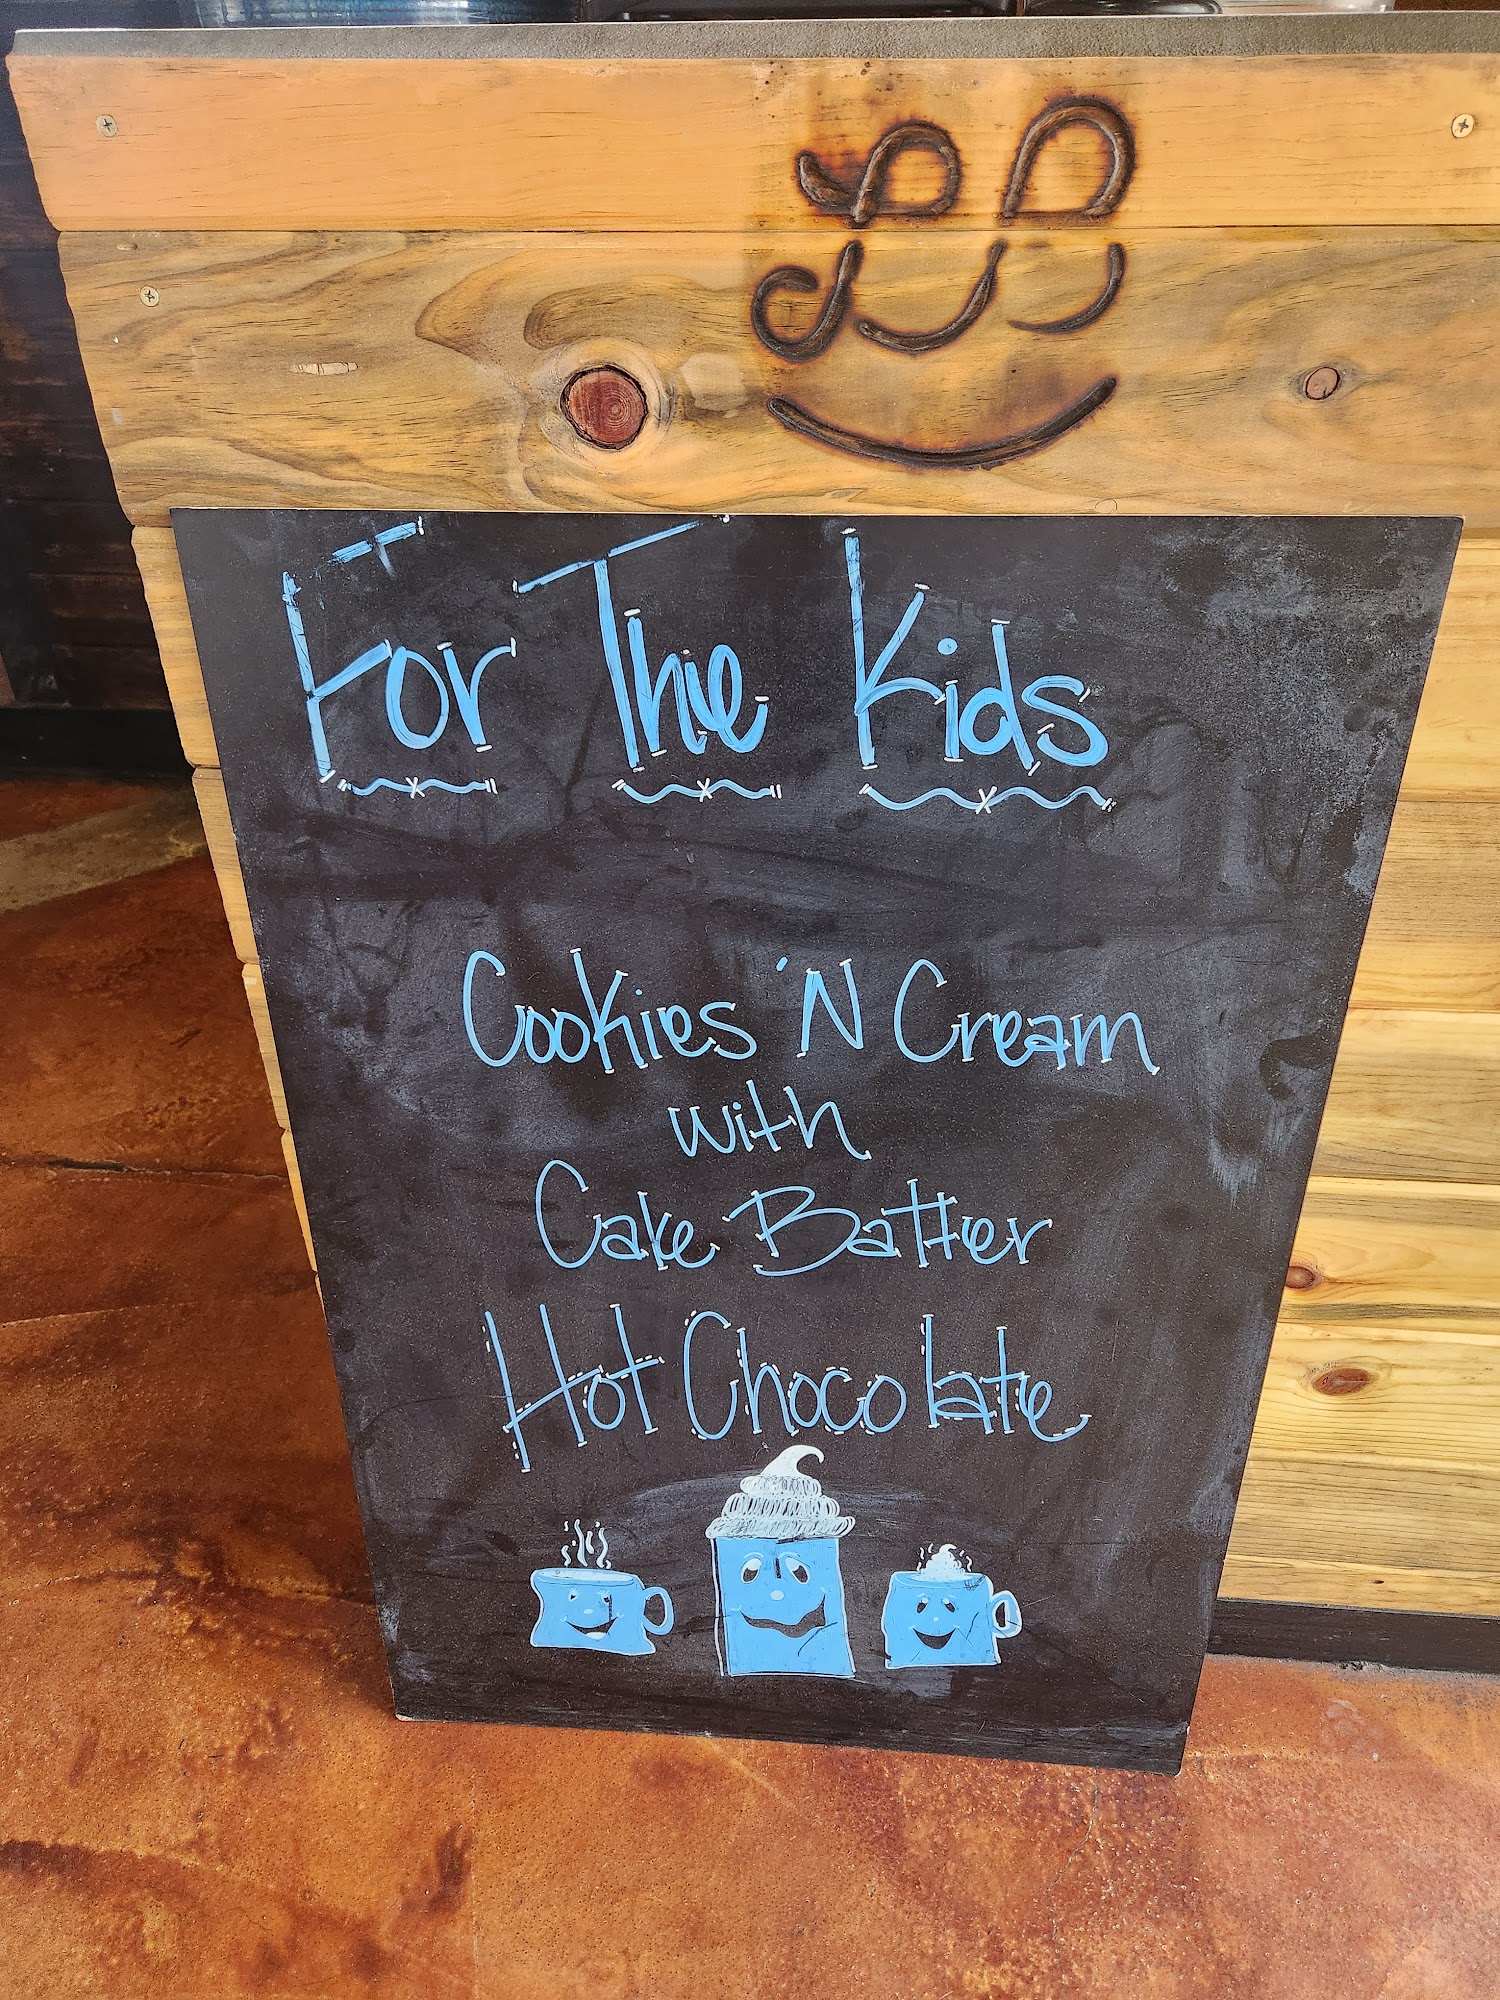 For The Kids
Cookies 'N Cream
with
Cake Batter
Hot Chocolate